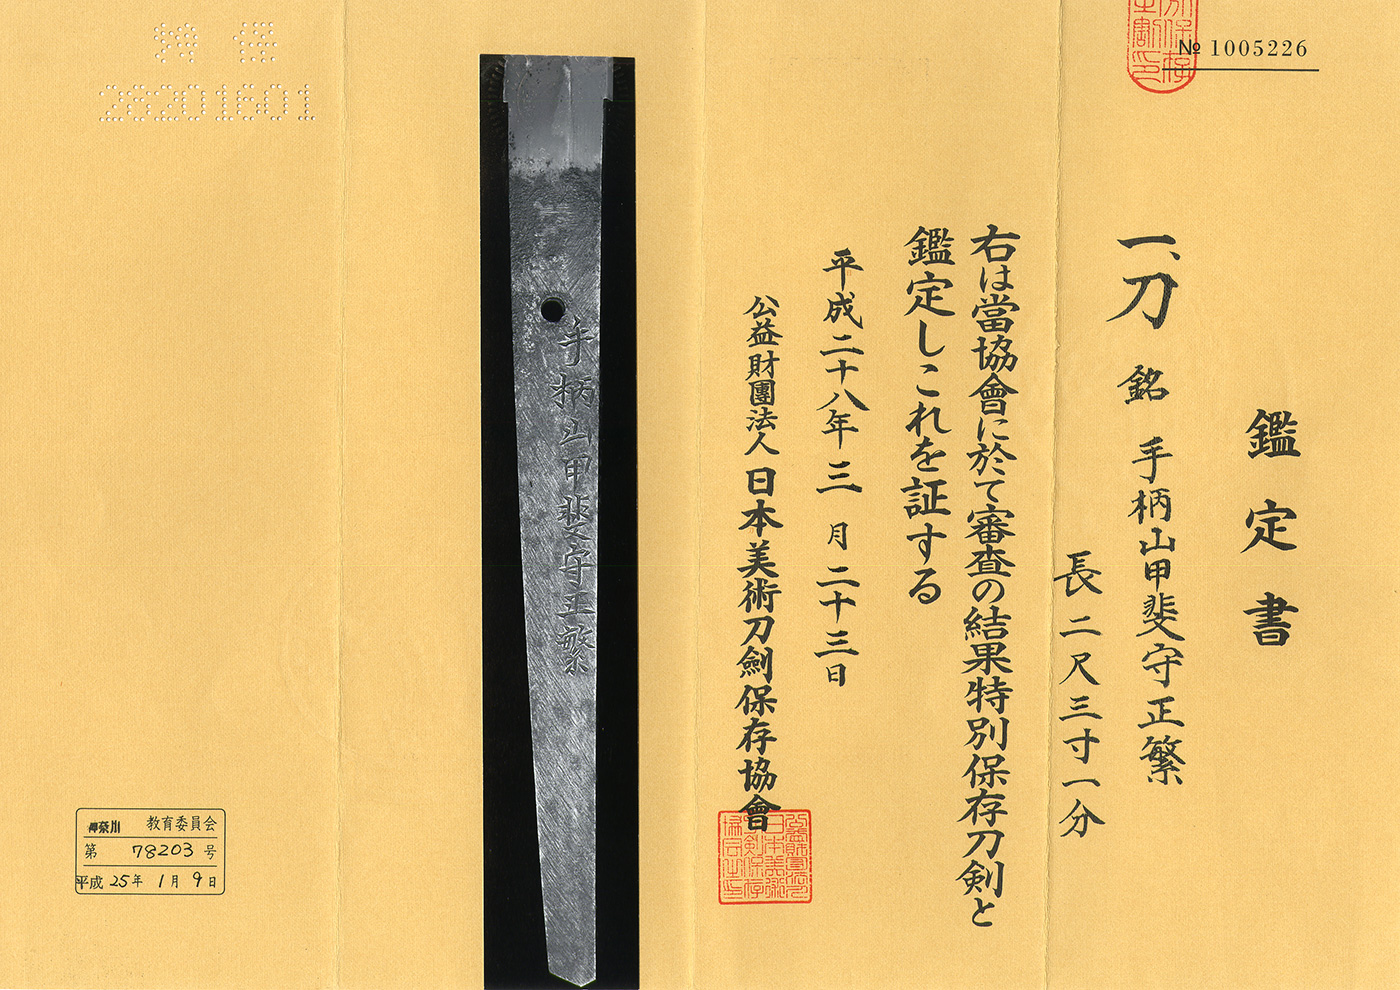 № 1005226
鑑定書
一、刀 銘 手柄山甲斐守正繁
長 二尺三寸一分
右は當協會に於て審査の結果特別保存刀剣と
鑑定しこれを証する
平成二十八年三月二十三日
公益財團法人 日本美術刀劍保存協會
手柄山甲斐守正繁
28201601
神奈川 教育委員会
第 78203 号
平成 25年 1月 9日